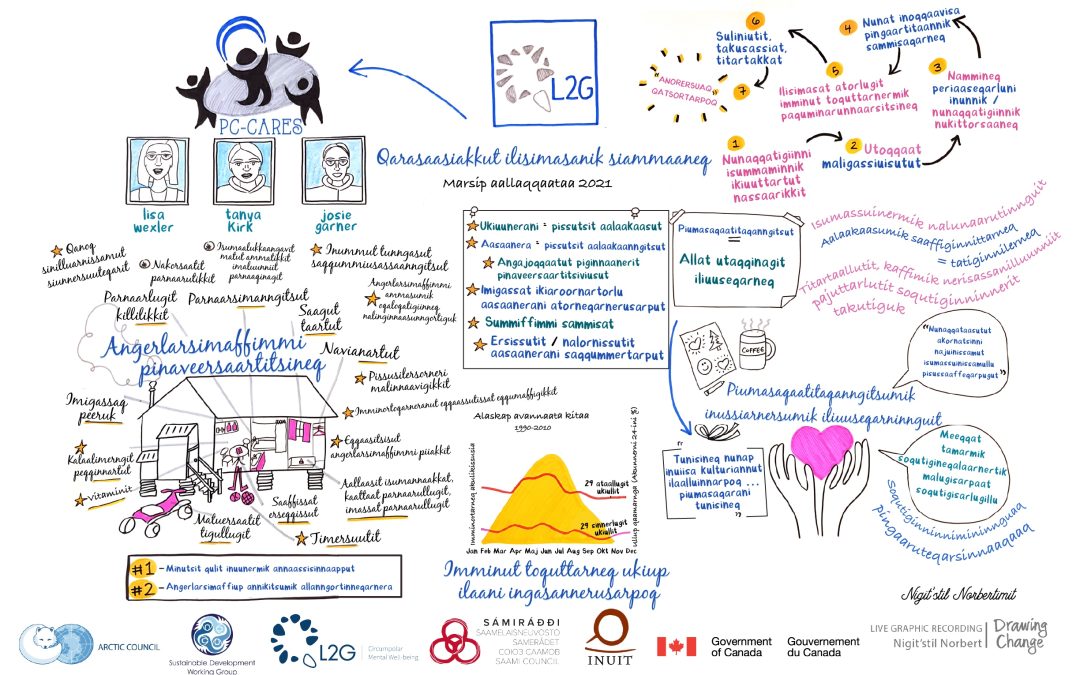 PC-CARES
L2G
Qarasaasiakkut ilisimasanik siammaaneq
Marsip aallaqqaataa 2021
lisa
wexler
tanya
Kirk
josie
garner
"ANORERSUAQ
QATSORTARPOQ"
1
Nunaqqatigiinni
isummaminnik
ikiuuttartut
nassaarikkit
2
Utoqqaat
maligassiuisutut
3
Nammineq
periaaseqarluni
inunnik /
nunaqqatigiinnik
nukittorsaaneq
4
Nunat inoqqaavisa
pingaartitaannik
sammisaqarneq
5
Ilisimasat atorlugit
imminut toquttarnermik
paquminarunnaarsitsineq
6
Suliniutit,
takusassiat,
titartakkat
7
Qanoq
sinilluarnissamut
siunnersuuteqarit
Nakorsaatit
paarnaarutikkit
Inummut tunngasut
saqqummiussassaanngitsut
Angerlarsimaffimmi
Parnaarlugit
killilikkit
Parnaarsimanngitsut
Saagut
taartut
Navianartut
Angerlarsimaffimmi
pinaveersaartitsineq
Imigassaq
peeruk
Kalaalimerngit
peqqinnartut
vitaminit
Pissusilersorneri
malinnaavigikkit
Imminortoqarneranut eqqaassutissat eqqumaffigikkit
Eqqaasitsisut
angerlarsimaffimmi piiakkit
Aallaasit isumannaakkat,
kaattaat parnaarullugit,
imassat parnaarullugit
Saaffissat
erseqqissut
Maluersaatit
tigullugit
Timersuutit
#1 - Minutsit qulit inuunermik annaassisinnaapput
#2 - Angerlarsimaffiup annikitsumik allanngortinneqarnera
Ukiuunerani = pissutsit aalaakaasut
Aasaanera = pissutsit aalaakaanngitsut
Angajoqqaatut piginnaanerit
pinaveersaartitsiviusut
Imigassat ikiaroornartorlu
aasaanerani atorneqarnerusarput
Summiffimmi sammisat
Ersissutit / nalornissutit
aasaanerani saqqummertarput
Piumasaqaatitaqanngitsut
=
Allat utaqqinagit
iliuuseqarneq
Isumassuinermik nalunaarutinnguit
Aalaakaasumik saaffiginnittarneq
= tatiginnilerneq
Titartaallutit, kaffimik nerisassanilluunniit
pajuttarlutit soqutiginninnerit
takutiguk
COFFEE
"Nunaqqataasutut
akornatsinni
najuinissamut
isumassuinissamullu
pisussaaffeqarpugut"
Piumasaqaatitaqanngitsumik
inussiarnersumik iliuuseqarninnguit
"Tunisineq nunap
inuiisa kulturiannut
ilaalluinnarpoq ...
piumasaqarani
tunisineq"
Meeqqat
tamarmik
soqutigineqalaarnertik
malugisarpaat
soqutigisarlugillu
Soqutiginninnimininnguaq
pingaaruteqarsinnaaqaaq
Alaskap avannaata kitaa
1990-2010
29 ataallugit
ukiullit
29 sinnerlugit
ukiullit
Jan Feb Mar Apr Maj Jun Jul Aug Sep Okt Nov Dec
Imminut toquttarneq ukiup
ilaani ingasannerusarpoq
Nigit'stil Norbertimit
ARCTIC COUNCIL
Sustainable Development
Working Group
L2G
Circumpolar
Mental Well-being
SÁMIRÁĐĐI
SAAMELAISNEUVOSTO
SAMERÅDET
СОЮЗ СААМОВ
SAAMI COUNCIL
INUIT
Government
of Canada
Gouvernement
du Canada
LIVE GRAPHIC RECORDING
Nigit'stil Norbert
Drawing
Change